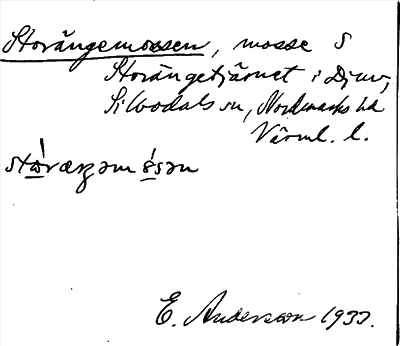 Storängemossen, mosse S
Storängetjärnet i Djuv,
Silbodals sn, Nordmarks hd
Värml. l.
E. Andersson 193